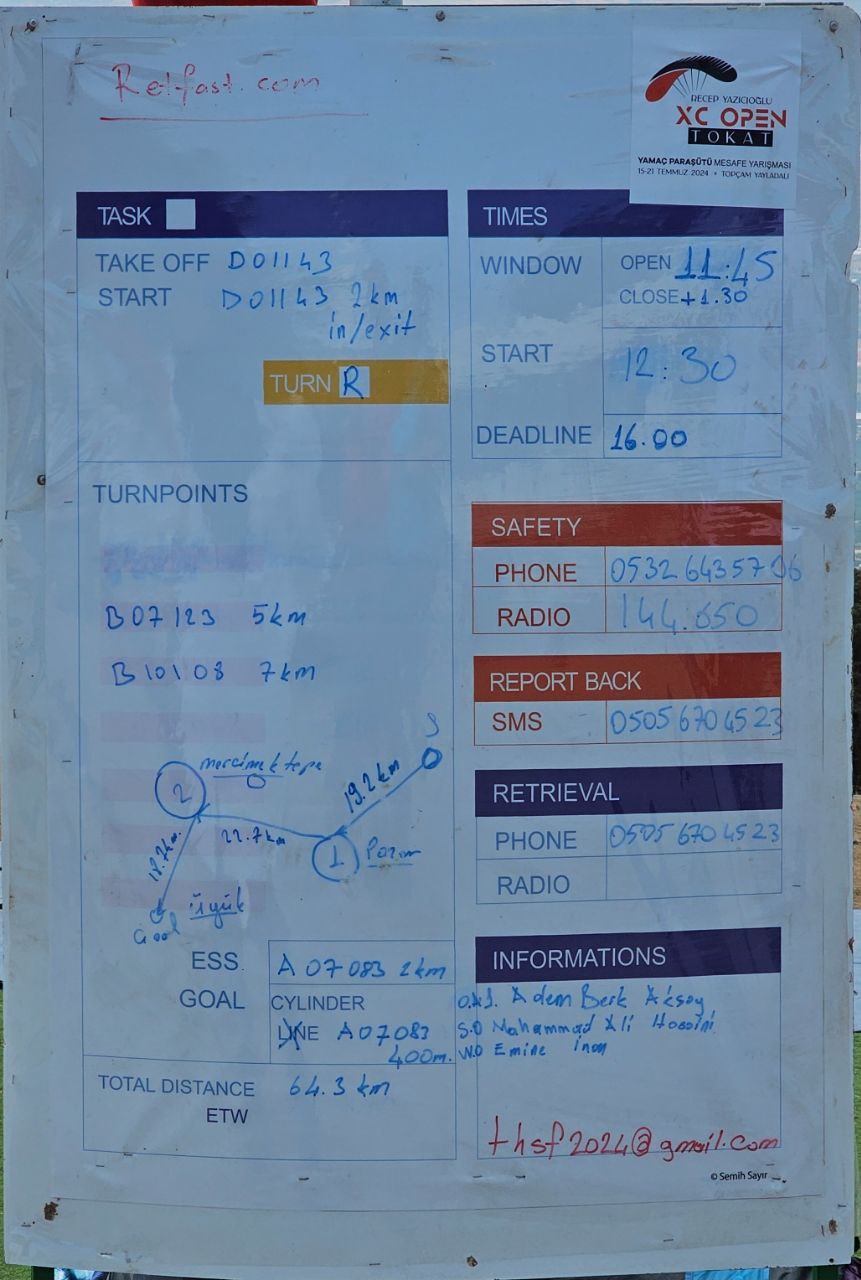 Retfast.com
RECEP YAZICIOĞLU
XC OPEN
TOKAT
YAMAÇ PARAŞÜTÜ MESAFE YARIŞMASI
15-21 TEMMUZ 2024 • TOPÇAM YAYLADALI
TASK
TAKE OFF D01143
START D01143 2km
in/exit
TURN R
TURNPOINTS
B07123 5km
B10108 7km
S
19.2km
mercimektepe
2
22.7km
1 Pazar
18.7km.
üyük
Goal
ESS A07083 2km
GOAL CYLINDER
LINE A07083
400m.
TOTAL DISTANCE 64.3 km
ETW
TIMES
WINDOW OPEN 11:45
CLOSE +1.30
START 12:30
DEADLINE 16.00
SAFETY
PHONE 0532 6435706
RADIO 144.650
REPORT BACK
SMS 0505 670 4523
RETRIEVAL
PHONE 0505 670 4523
RADIO
INFORMATIONS
Adem Berk Aksoy
S.D Mohammad Ali Hosini
W.O Emine inan
thsf2024@gmail.com
© Semih Sayır